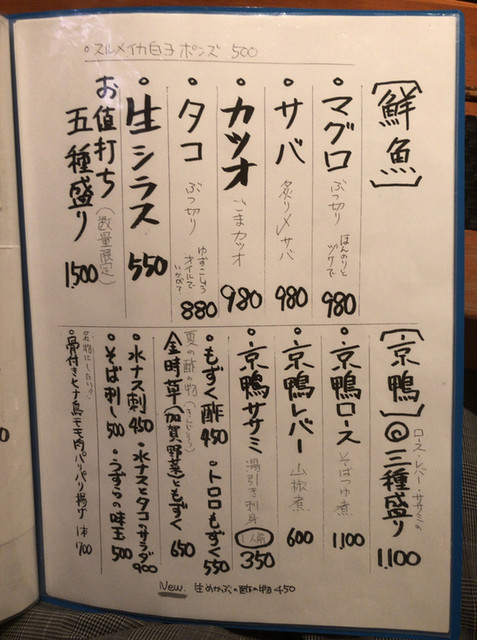 。スルメイカ白子ポンズ 500
[鮮魚]
。マグロ ぶつ切り ほんのりとヅケで 980
。サバ 炙り〆サバ 980
。カツオ ごまカツオ 980
。タコ ぶつ切り ゆずこしょうオイルでいかがで 880
。生シラス 550
お値打ち五種盛り(数量限定) 1,500
[京鴨]
ロース・レバー・ササミの
◎三種盛り 1,100
。京鴨ロース そばつゆ煮 1,100
。京鴨レバー 山椒煮 600
。京鴨ササミ 湯引き刺身 1人前 350
。もずく酢 450 。トロロもずく 550
夏の酢の物(きんじそう)
金時草(加賀野菜)ともずく 650
。水ナス刺 450 。水ナスとタコのサラダ 900
。そば刺し 500 。うずらの味玉 500
名物にしたい!!
。骨付きヒナ鳥モモ肉パリパリ揚げ 1本 700
New. 生めかぶの酢の物 450